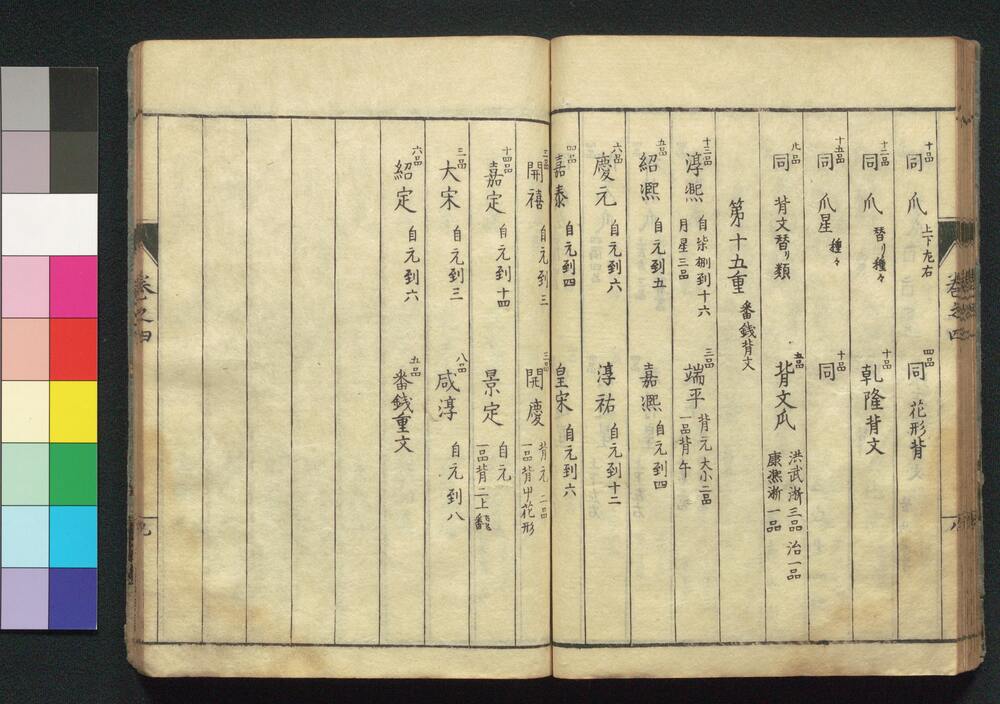 十品 同 爪 上下左右 四品 同 花形背
十二品 同 爪 替り種々 十品 乾隆背文
十五品 同 爪星 種々 十品 同
九品 同 背文替り類 背文爪 洪武浙三品 治一品 康熈浙一品
第十五重 番銭背文
十三品 淳熈 自柒捌到十六 月星三品 三品 端平 背元大小二品 一品背午
五品 紹熈 自元到五 嘉熈 自元到四
六品 慶元 自元到六 淳祐 自元到十二
四品 嘉泰 自元到四 皇宋 自元到六
三品 開禧 自元到三 三品 開慶 背元二品 一品背中花形
十四品 嘉定 自元到十四 景定 自元 一品背二上番
三品 大宋 自元到三 八品 咸淳 自元到八
六品 紹定 自元到六 五品 番銭重文
巻之四
八
巻之四
九